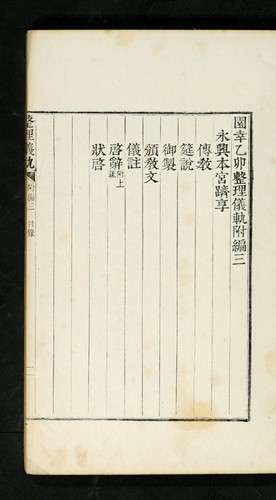 園幸乙卯整理儀軌附編三
永興本宮躋享
傳敎
筵說
御製
頒敎文
儀註
啓辭附上䟽
狀啓
整理儀軌 附編三 目錄 一